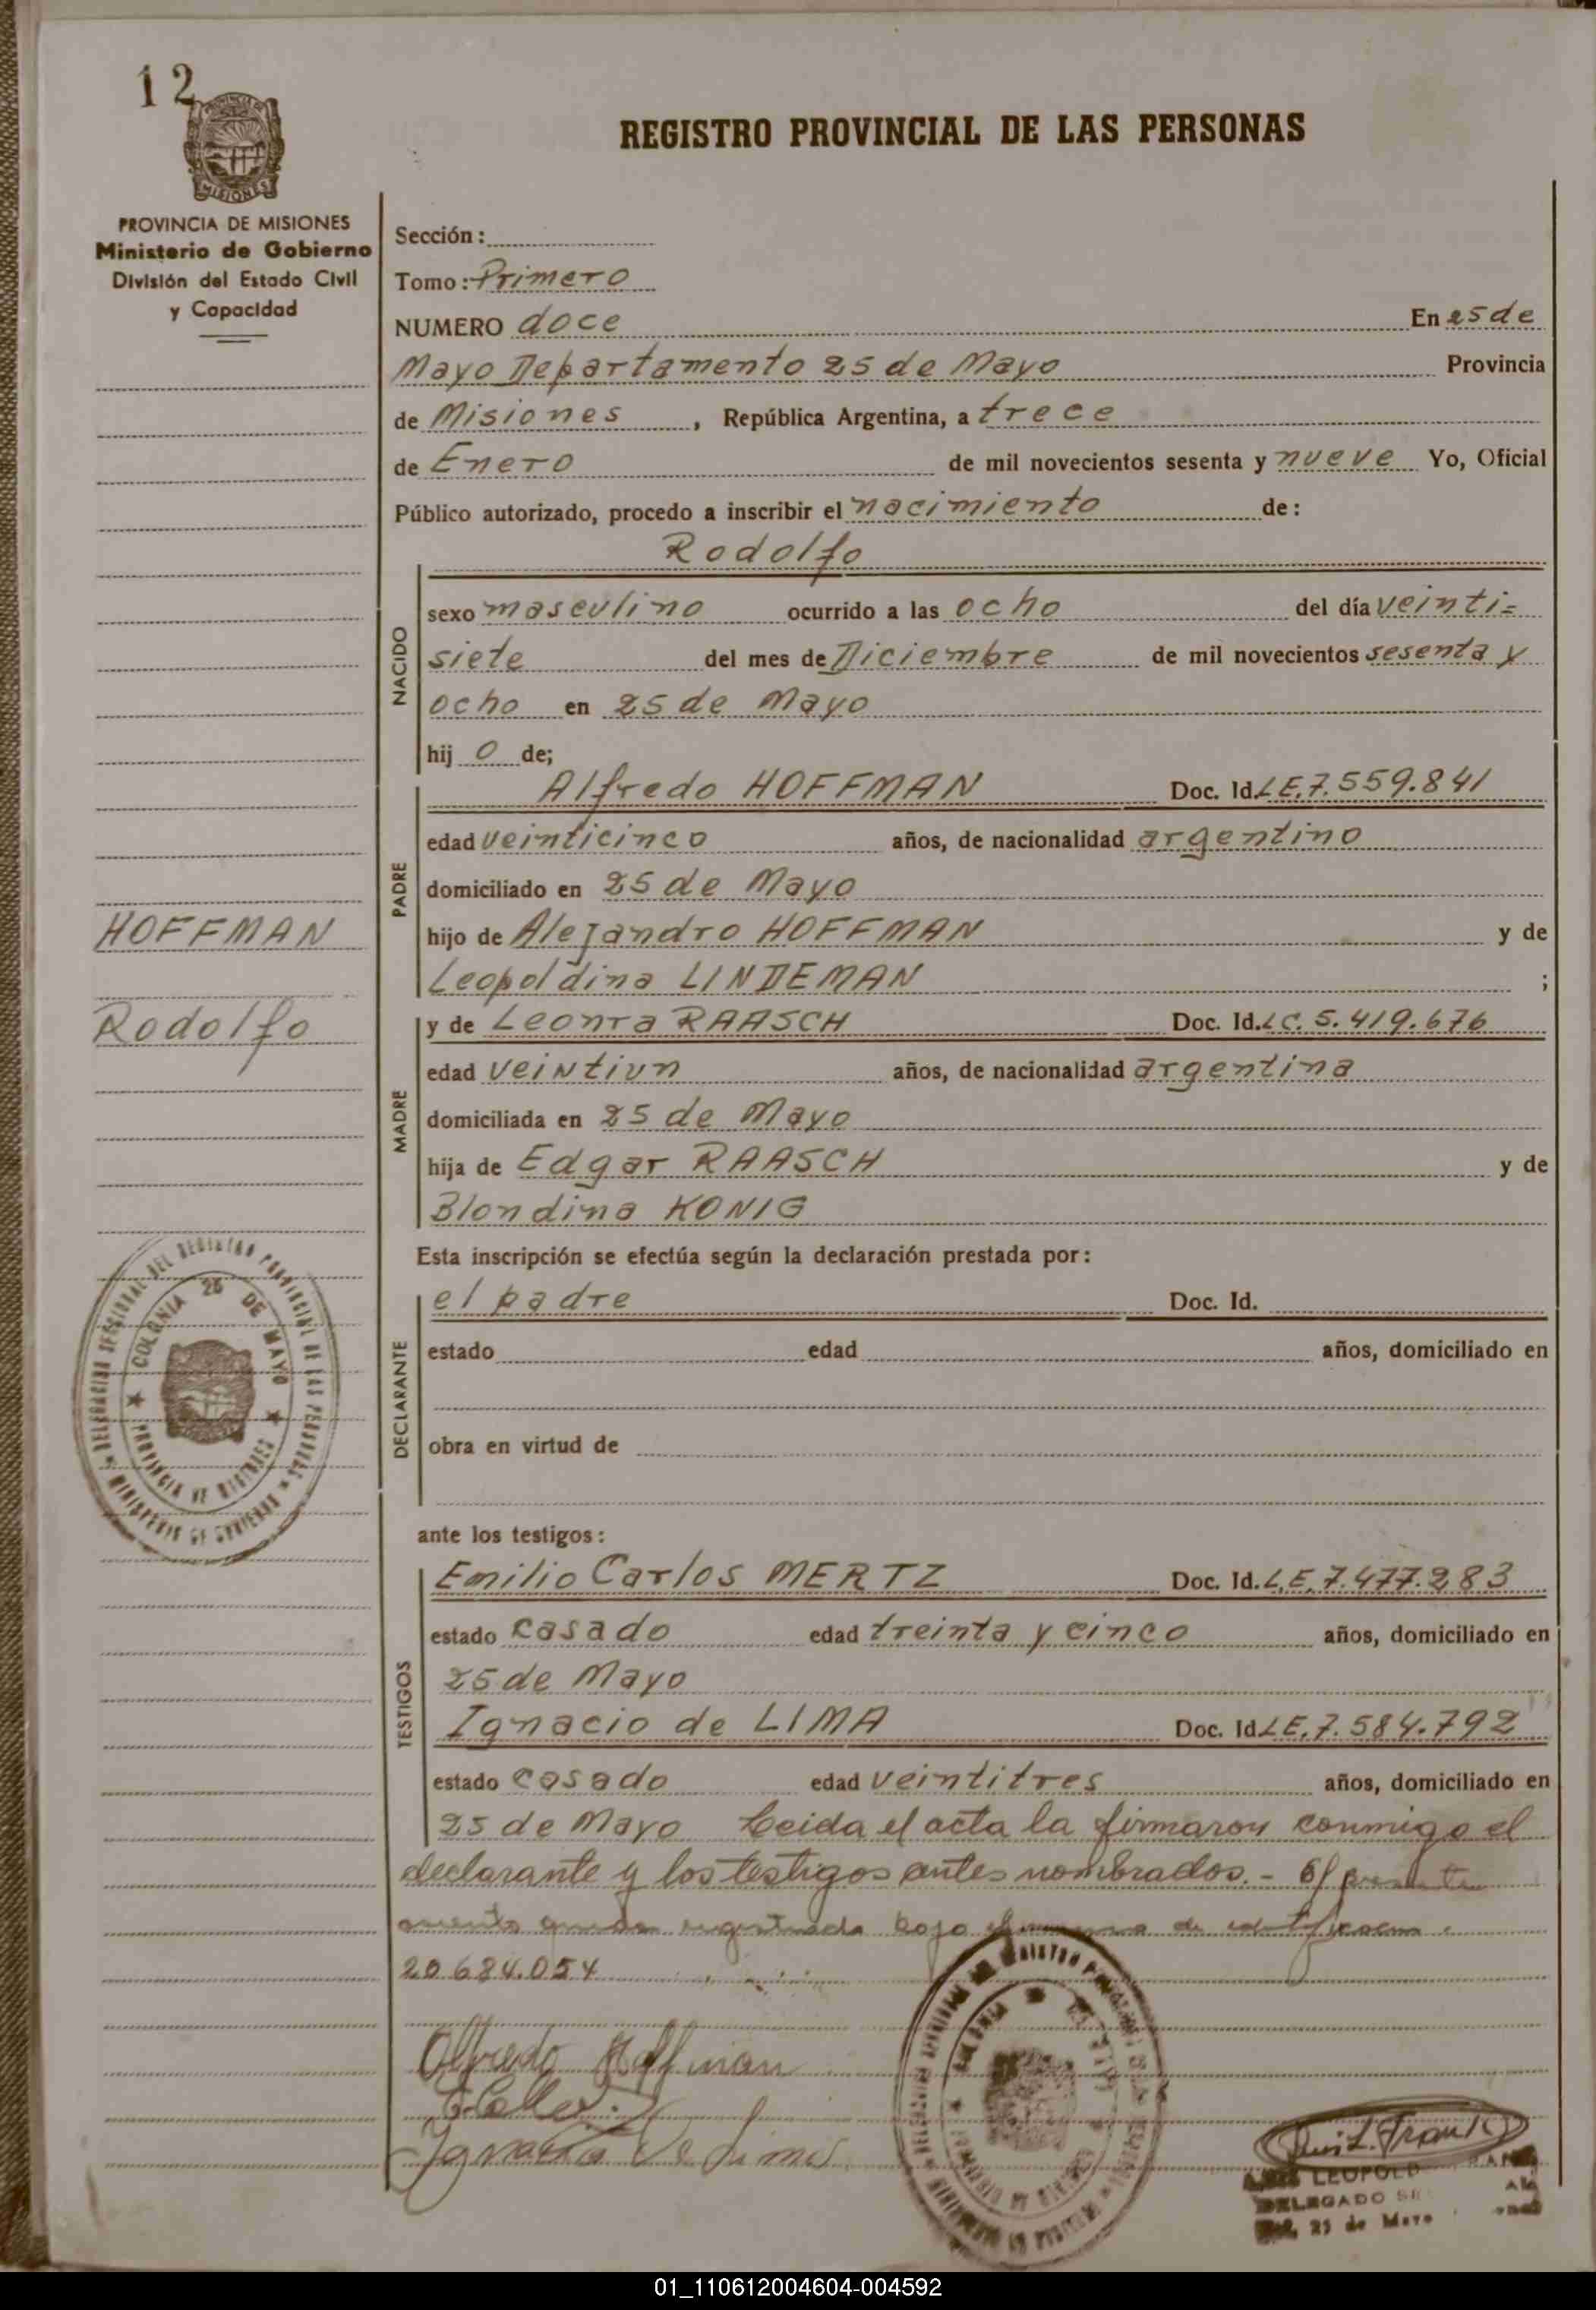 12
REGISTRO PROVINCIAL DE LAS PERSONAS
MISIONES
PROVINCIA DE MISIONES
Ministerio de Gobierno
División del Estado Civil
y Capacidad
Sección:
Tomo: Primero
NUMERO doce En 25 de
Mayo Departamento 25 de Mayo Provincia
de Misiones, República Argentina, a trece
de Enero de mil novecientos sesenta y nueve Yo, Oficial
Público autorizado, procedo a inscribir el nacimiento de:
Rodolfo
NACIDO
sexo masculino ocurrido a las ocho del día veinti=
siete del mes de Diciembre de mil novecientos sesenta y
ocho en 25 de Mayo
hijo de;
PADRE
Alfredo HOFFMAN Doc. Id. LE. 7.559.841
edad veinticinco años, de nacionalidad argentino
domiciliado en 25 de Mayo
HOFFMAN
hijo de Alejandro HOFFMAN y de
Leopoldina LINDEMAN ;
Rodolfo
MADRE
y de Leonra RAASCH Doc. Id. LC. 5.419.676
edad veintiun años, de nacionalidad argentina
domiciliada en 25 de Mayo
hija de Edgar RAASCH y de
Blondina KONIG
Esta inscripción se efectúa según la declaración prestada por:
DECLARANTE
el padre Doc. Id.
estado edad años, domiciliado en
obra en virtud de
DELEGACION SECCIONAL DEL REGISTRO PROVINCIAL DE LAS PERSONAS
MINISTERIO DE GOBIERNO
COLONIA 25 DE MAYO
PROVINCIA DE MISIONES
ante los testigos:
TESTIGOS
Emilio Carlos MERTZ Doc. Id. L.E. 7.477.283
estado casado edad treinta y cinco años, domiciliado en
25 de Mayo
Ignacio de LIMA Doc. Id. LE. 7.584.792
estado casado edad veintitres años, domiciliado en
25 de Mayo Leida el acta la firmaron conmigo el
declarante y los testigos antes nombrados.- El presente
asiento queda registrado bajo de
20.684.054
Alfredo Hoffman
Ignacio De Lima
Luis L. Frank
LEOPOLD
DELEGADO
25 de Mayo
01_110612004604-004592